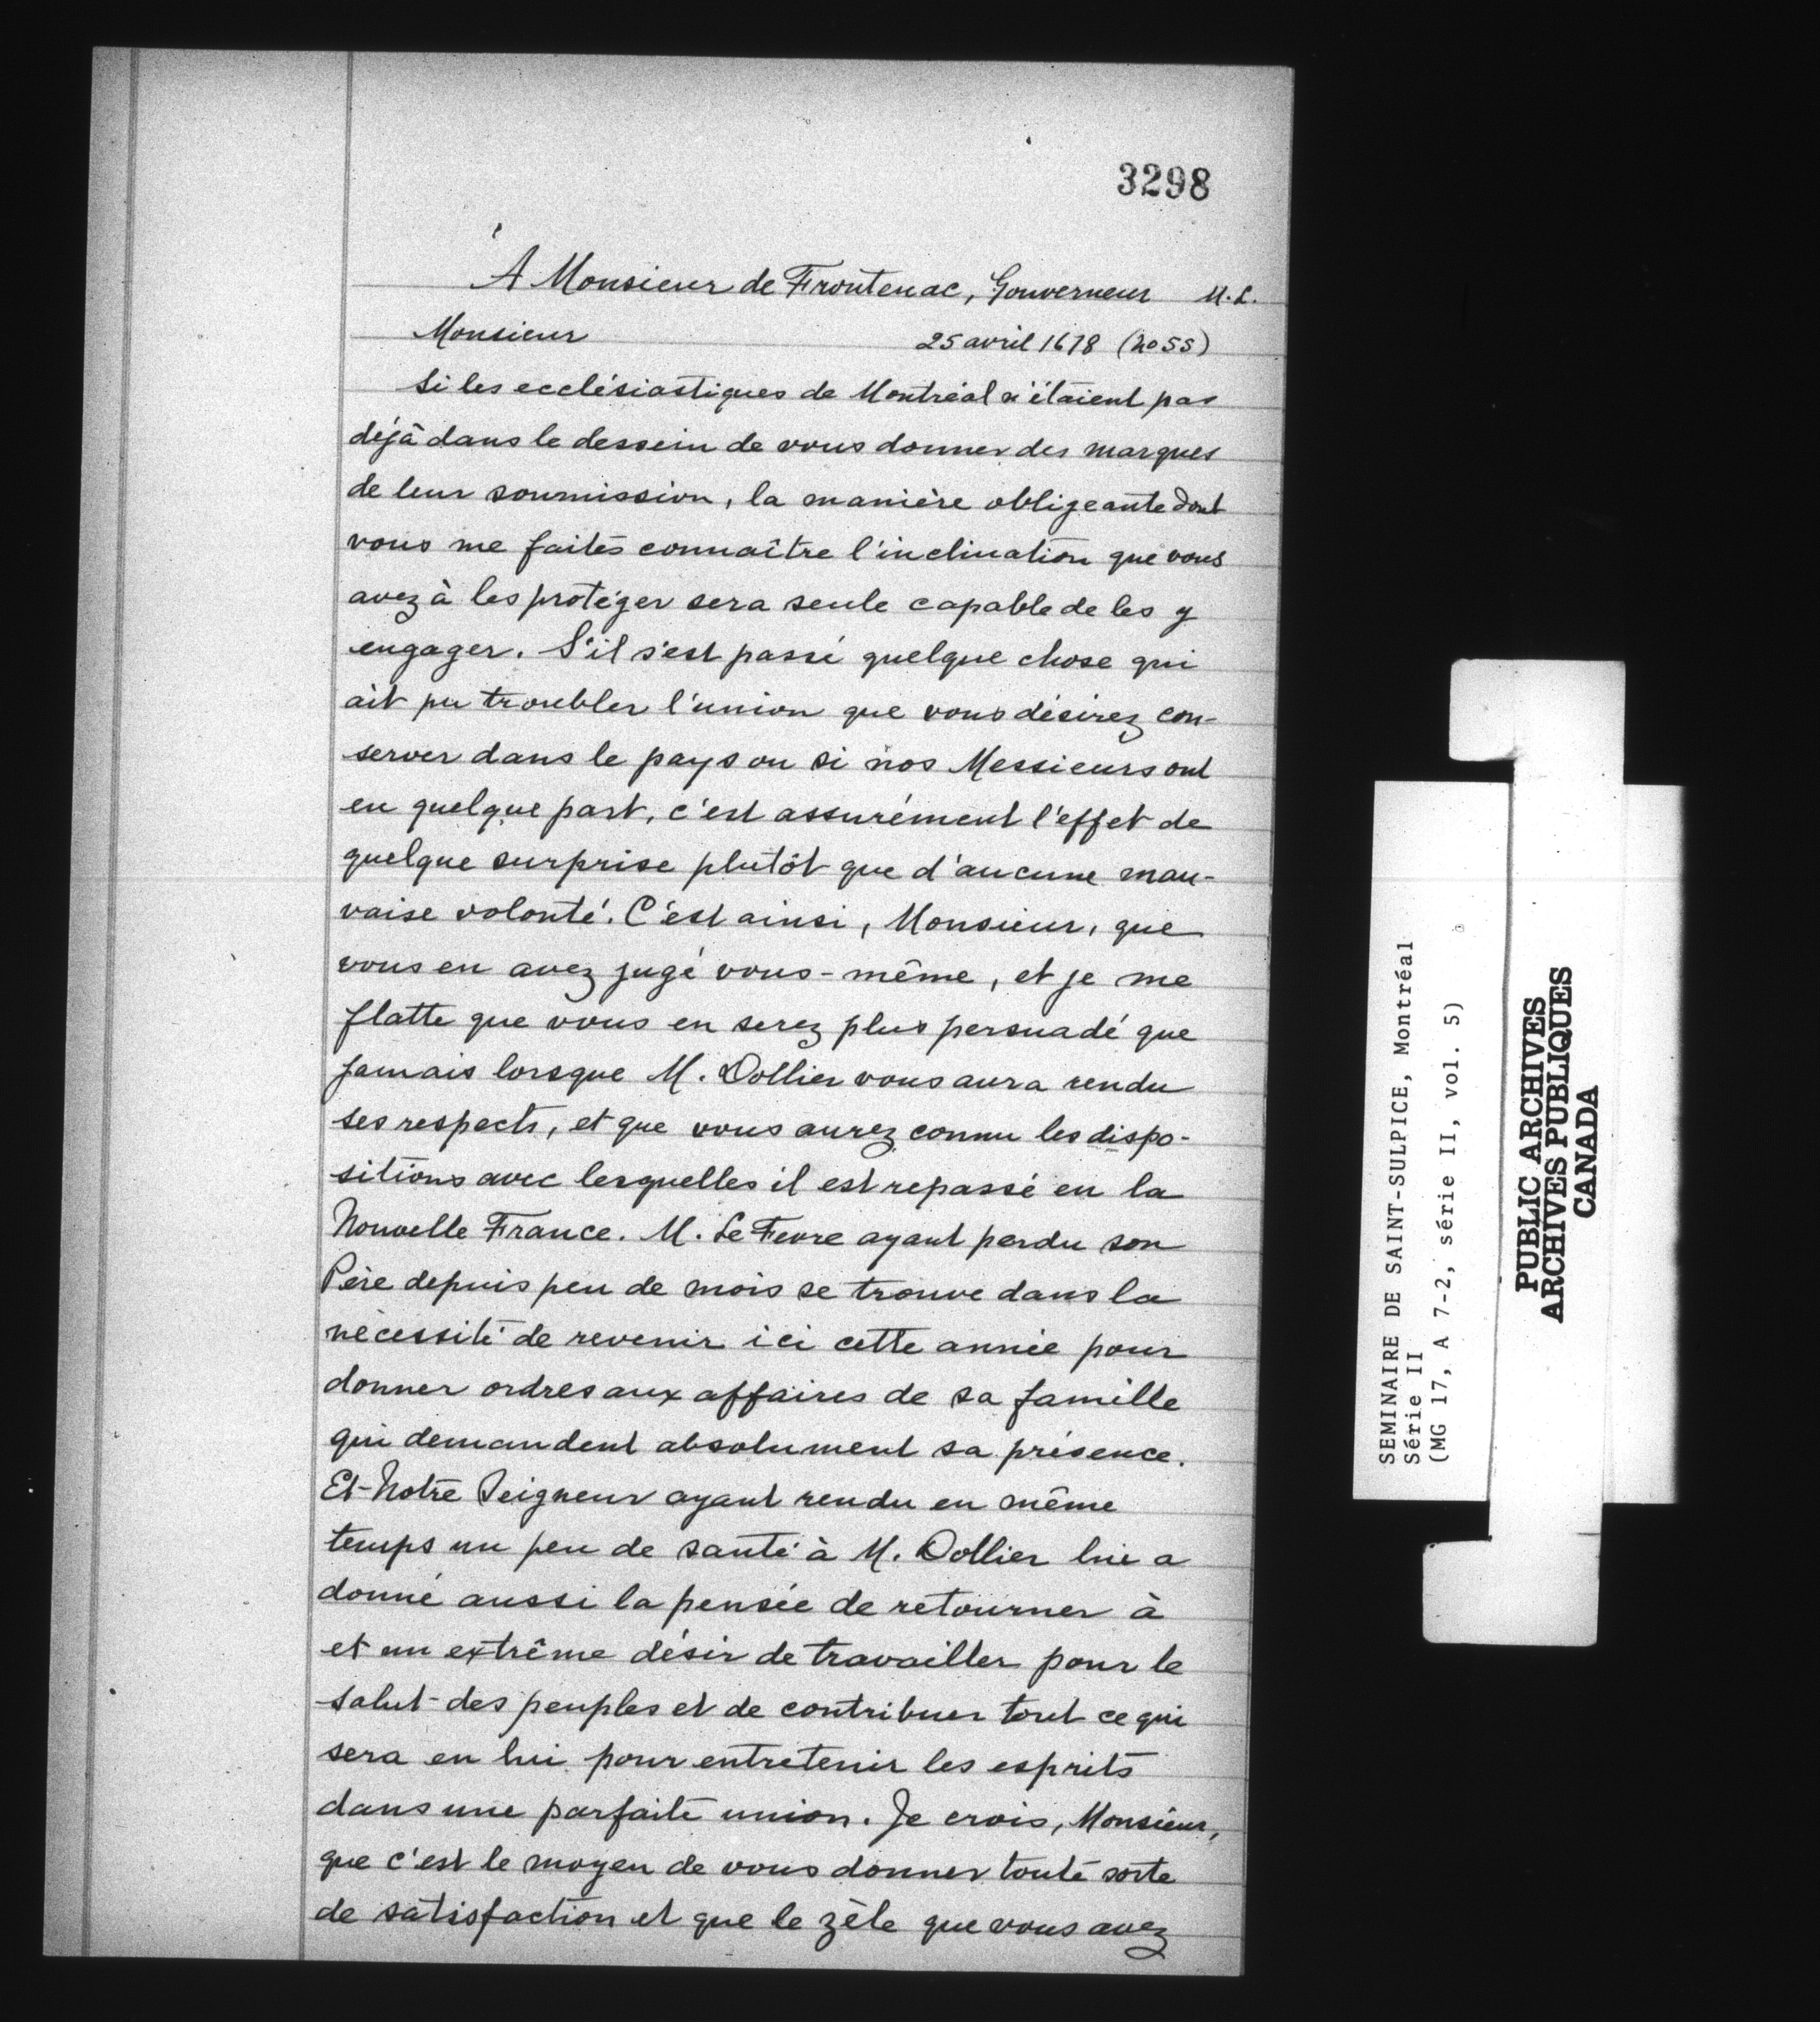 3298
A Monsieur de Frontenac, Gouverneur M.L.
Monsieur 25 avril 1678 (No 55)
Si les ecclésiastiques de Montréal n'étaient pas
déjà dans le dessein de vous donner des marques
de leur soumission, la manière obligeante dont
vous me faites connaître l'inclination que vous
avez à les protéger sera seule capable de les y
engager. S'il s'est passé quelque chose qui
ait pu troubler l'union que vous désirez con-
server dans le pays ou si nos Messieurs ont
eu quelque part, c'est assurément l'effet de
quelque surprise plutôt que d'aucune mau-
vaise volonté. C'est ainsi, Monsieur, que
vous en avez jugé vous-même, et je me
flatte que vous en serez plus persuadé que
jamais lorsque M. Dollier vous aura rendu
ses respects, et que vous aurez connu les dispo-
sitions avec lesquelles il est repassé en la
Nouvelle France. M. Le Fevre ayant perdu son
Père depuis peu de mois se trouve dans la
nécessité de revenir ici cette année pour
donner ordres aux affaires de sa famille
qui demandent absolument sa présence.
Et Notre Seigneur ayant rendu en même
temps un peu de santé à M. Dollier lui a
donné aussi la pensée de retourner à
et un extrême désir de travailler pour le
salut des peuples et de contribuer tout ce qui
sera en lui pour entretenir les esprits
dans une parfaite union. Je crois, Monsieur,
que c'est le moyen de vous donner toute sorte
de satisfaction et que le zèle que vous avez
SEMINAIRE DE SAINT-SULPICE, Montréal
Série II
(MG 17, A 7-2, série II, vol. 5)
PUBLIC ARCHIVES
ARCHIVES PUBLIQUES
CANADA